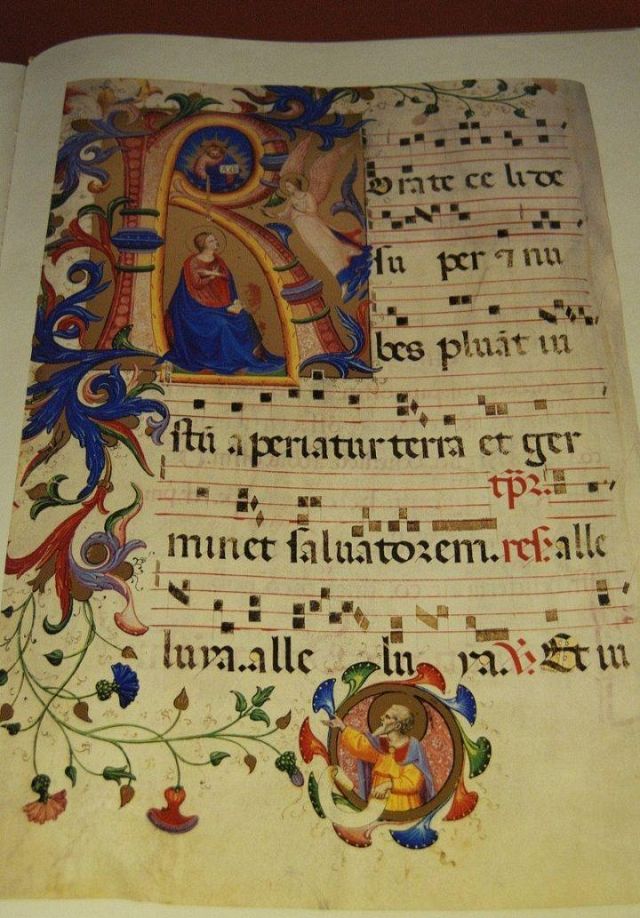 R orate ce li de
su per ⁊ nu
bes pluāt iu
stū aperiatur terra et ger
tp̄ꝛ.
minet saluatoꝛem. res. alle
luya. alle lu ya. ℣. Et iu